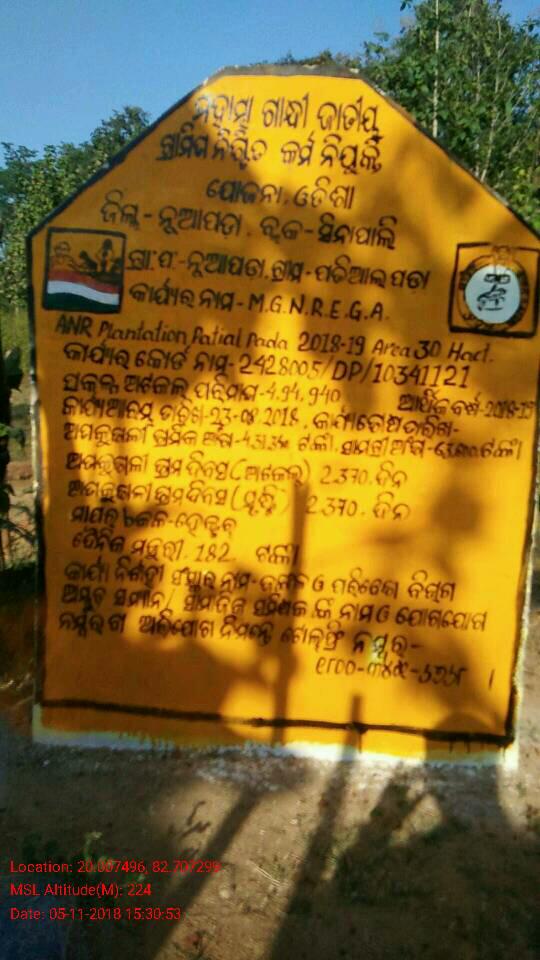 ମହାତ୍ମା ଗାନ୍ଧୀ ଜାତୀୟ
ନିଶ୍ଚିତ କର୍ମ ନିଯୁକ୍ତି
ଯୋଜନା, ଓଡିଶା
ଜିଲ୍ଲା - ନୂଆପଡା, ବ୍ଲକ - ସିନାପାଲି
ଗ୍ରା.ପ. - ନୂଆପଡା, ଗ୍ରାମ - ପଟିଆଲପଡା
କାର୍ଯ୍ୟର ନାମ - M.G.N.R.E.G.A.
ANR Plantation Patial Pada 2018-19 Area 30 Hact.
କାର୍ଯ୍ୟର କୋର୍ଡ ନାମ୍ବ - 2428005/DP/10341121
ପ୍ରକଳ୍ପ ଅଟକଳ ପରିମାଣ - 4.94,940 ଆର୍ଥିକ ବର୍ଷ - 2018-19
କାର୍ଯ୍ୟ ଆରମ୍ଭ ତାରିଖ - 23-08-2018, କାର୍ଯ୍ୟ ଶେଷ ତାରିଖ -
ଅଣକୁଶଳୀ ଶ୍ରମିକ ଅଂଶ - ଟଙ୍କା, ସାମଗ୍ରୀ ଅଂଶ - ଟଙ୍କା
ଅଣକୁଶଳୀ ଶ୍ରମ ଦିବସ (ଅଟକଳ) 2.370. ଦିନ
ଅଣକୁଶଳୀ ଶ୍ରମ ଦିବସ (ସୃଷ୍ଟି) 2.370. ଦିନ
ମାପର ସ୍କେଲ - ହେକ୍ଟର
ଦୈନିକ ମଜୁରୀ. 182. ଟଙ୍କା
କାର୍ଯ୍ୟ ନିର୍ବାହୀ ସଂସ୍ଥାର ନାମ - ଜଙ୍ଗଲ ଓ ପରିବେଶ ବିଭାଗ
ସମୀକ୍ଷକ ଙ୍କ ନାମ ଓ ଯୋଗାଯୋଗ
ନମ୍ବର ଅଭିଯୋଗ ନିମନ୍ତେ ଟୋଲ୍‌ଫ୍ରି ନମ୍ବର -
Location: 20.007496, 82.707299
MSL Altitude(M): 224
Date: 05-11-2018 15:30:53